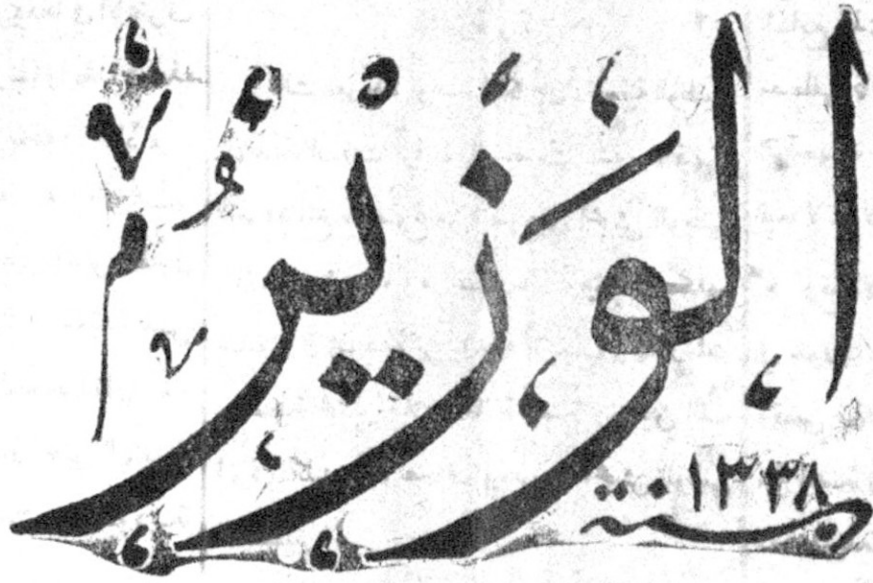 الوَزِيْرُ
سنة ١٣٣٨